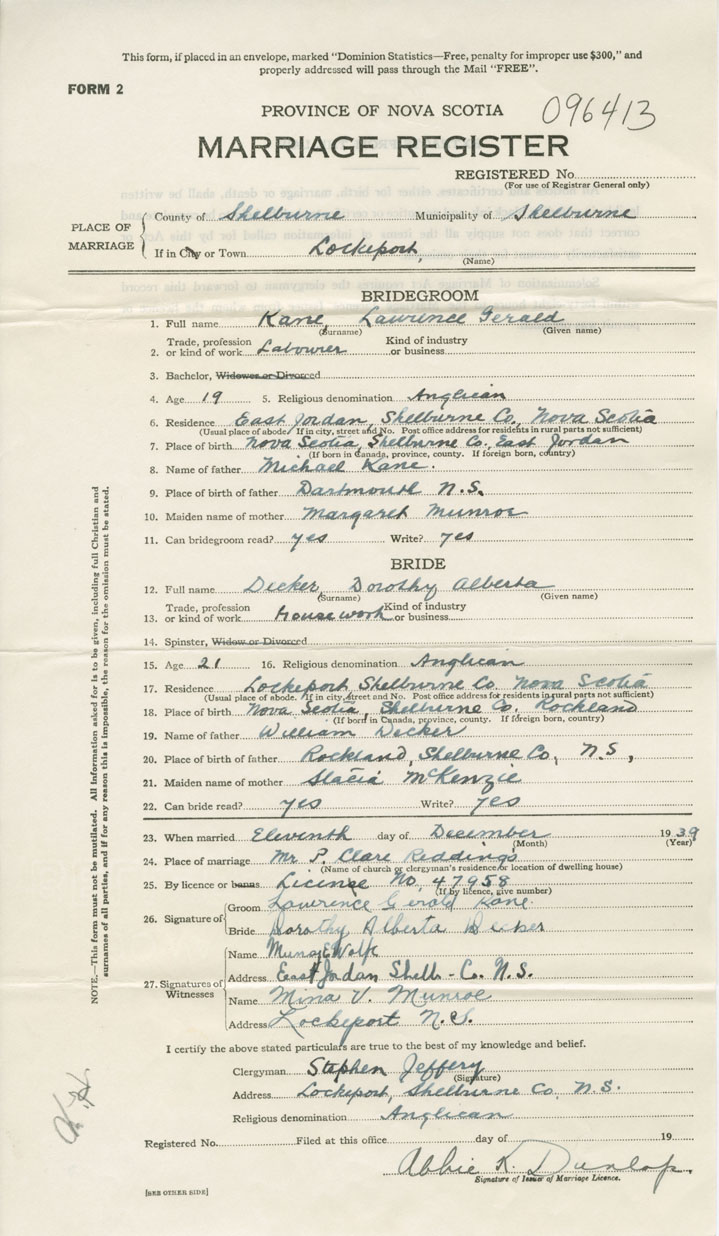 This form, if placed in an envelope, marked "Dominion Statistics—Free, penalty for improper use $300," and
properly addressed will pass through the Mail "FREE".
FORM 2
PROVINCE OF NOVA SCOTIA
096413
MARRIAGE REGISTER
REGISTERED No.
(For use of Registrar General only)
PLACE OF MARRIAGE
County of Shelburne Municipality of Shelburne
If in City or Town Lockeport,
(Name)
BRIDEGROOM
1. Full name Kane, Lawrence Gerald
(Surname) (Given name)
Trade, profession Kind of industry
2. or kind of work Labourer or business
3. Bachelor, Widower or Divorced
4. Age 19 5. Religious denomination Anglican
6. Residence East Jordan, Shelburne Co, Nova Scotia
(Usual place of abode. If in city, street and No. Post office address for residents in rural parts not sufficient)
7. Place of birth Nova Scotia, Shelburne Co, East Jordan
(If born in Canada, province, county. If foreign born, country)
8. Name of father Michael Kane.
9. Place of birth of father Dartmouth N.S.
10. Maiden name of mother Margaret Munroe
11. Can bridegroom read? yes Write? yes
BRIDE
12. Full name Decker, Dorothy Alberta
(Surname) (Given name)
Trade, profession Kind of industry
13. or kind of work Housework or business
14. Spinster, Widow or Divorced
15. Age 21 16. Religious denomination Anglican
17. Residence Lockeport, Shelburne Co. Nova Scotia
(Usual place of abode. If in city, street and No. Post office address for residents in rural parts not sufficient)
18. Place of birth Nova Scotia, Shelburne Co, Rockland
(If born in Canada, province, county. If foreign born, country)
19. Name of father William Decker
20. Place of birth of father Rockland, Shelburne Co, N.S,
21. Maiden name of mother Stacia McKenzie
22. Can bride read? yes Write? yes
23. When married Eleventh day of December 1939
(Month) (Year)
24. Place of marriage Mr P. Clare Reddings
(Name of church or clergyman's residence/or location of dwelling house)
25. By licence or banns License No, 47958
(If by licence, give number)
26. Signature of
Groom Lawrence Gerald Kane.
Bride Dorothy Alberta Decker
27. Signatures of Witnesses
Name Wolfe
Address East Jordan Shelb-Co. N.S.
Name Mina V. Munroe
Address Lockeport N.S.
I certify the above stated particulars are true to the best of my knowledge and belief.
Clergyman Stephen Jeffery
(Signature)
Address Lockeport, Shelburne Co, N.S.
Religious denomination Anglican
Registered No. Filed at this office day of 19
Abbie K. Dunlop.
Signature of Issuer of Marriage Licence.
[SEE OTHER SIDE]
NOTE.—This form must not be mutilated. All information asked for is to be given, including full Christian and
surnames of all parties, and if for any reason this is impossible, the reason for the omission must be stated.